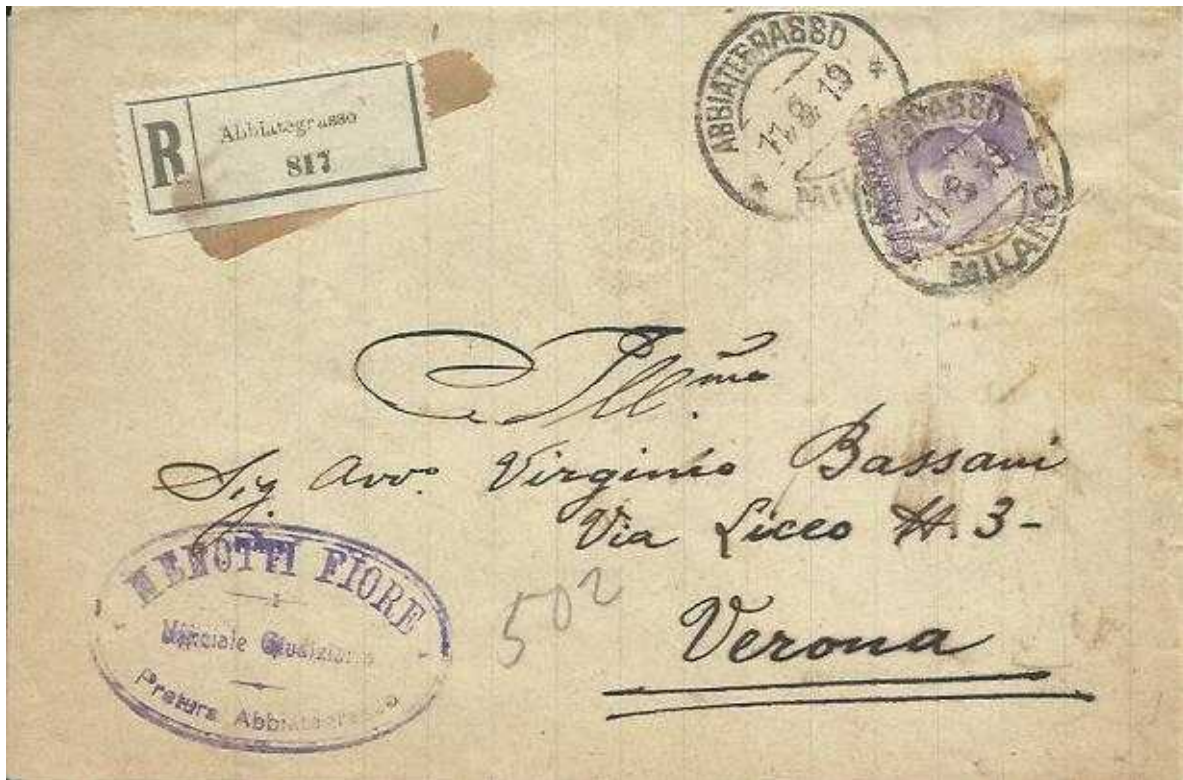 R
Abbiategrasso
817
ABBIATEGRASSO
11.8.19
MILANO
GRASSO
11.8.19
MILANO
Ill.mo
Sig Avv.o Virginio Bassani
Via Liceo N. 3-
Verona
502
MENOTTI FIORE
Ufficiale Giudiziario
Pretura Abbiategrasso